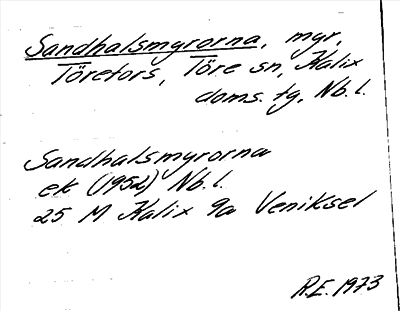 Sandhalsmyrorna, myr,
Törefors, Töre sn, Kalix
doms. tg, Nb. l.
Sandhalsmyrorna
ek (1952) Nb. l.
25 M Kalix 9a Veniksel
R.E. 1973